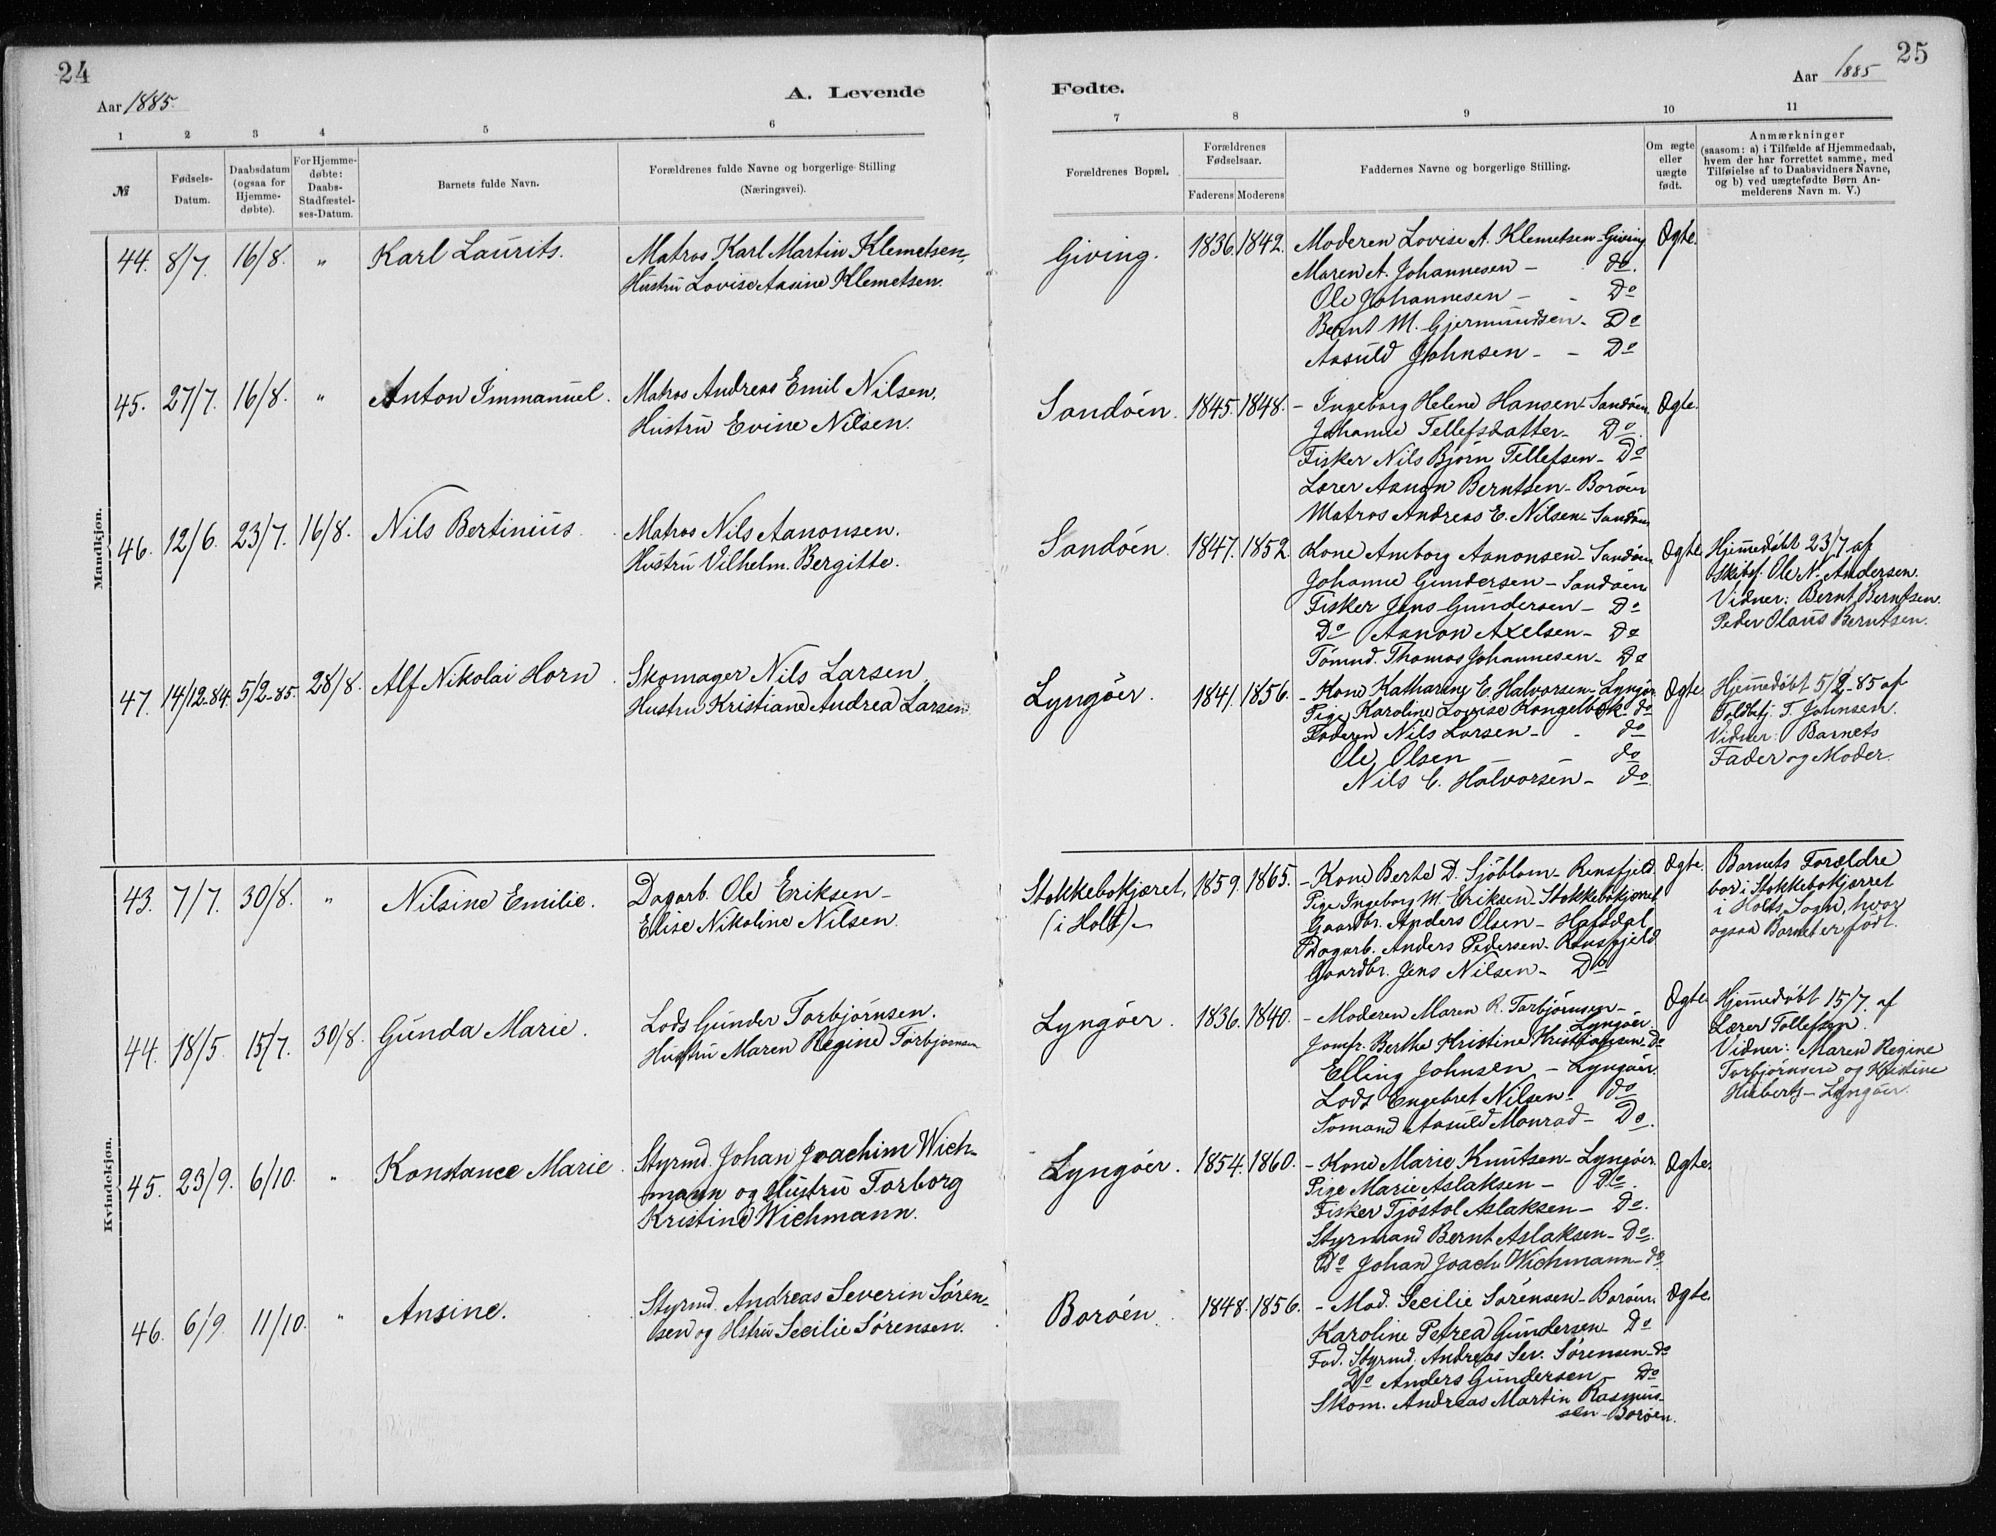 24
Aar 1885.
A. Levende
Fødte.
Aar 1885
25
1 2 3 4 5 6 7 8 9 10 11
№
Fødsels-Datum.
Daabsdatum (ogsaa for Hjemme-døbte).
For Hjemme-døbte: Daabs-Stadfæstel-ses-Datum.
Barnets fulde Navn.
Forældrenes fulde Navne og borgerlige Stilling (Næringsvei).
Forældrenes Bopæl.
Forældrenes Fødselsaar.
Faderens Moderens
Faddernes Navne og borgerlige Stilling.
Om ægte eller uægte født.
Anmærkninger
(saasom: a) i Tilfælde af Hjemmedaab,
hvem der har forrettet samme, med
Tilføielse af to Daabsvidners Navne,
og b) ved uægtefødte Børn An-
melderens Navn m. V.)
Mandkjøn.
44. 8/7. 16/8. " Karl Laurits.
Matros Karl Martin Klemetsen,
Hustru Lovise Aasine Klemetsen.
Giving. 1836. 1842.
Moderen Lovise A. Klemetsen - Giving
Maren A. Johannesen - do.
Ole Johannesen - - Do
Bernt M. Gjermundsen - Do
Aasuld Johnsen - - Do
Ægte.
45. 27/7. 16/8. " Anton Immanuel.
Matros Andreas Emil Nilsen,
Hustru Evine Nilsen.
Sandöen. 1845. 1848.
- Ingeborg Helene Hansen - Sandöen
Johanne Tellefsdatter - Do.
Fisker Nils Björn Tellefsen - Do
Lærer Aanon Berntsen - Boröen
Matros Andreas E. Nilsen - Sandöen
Ægte.
46. 12/6. 23/7. 16/8. Nils Bertinius.
Matros Nils Aanonsen.
Hustru Vilhelm. Bergitte.
Sandöen. 1847. 1852.
Kone Anborg Aanonsen - Sandöen
Johanne Gundersen - Sandöen
Fisker Jens Gundersen - Do
Do Aanon Axelsen - Do
Tömmd. Thomas Johannesen - Do
Ægte.
Hjemmedöbt 23/7 af
Skibsf. Ole N. Andersen.
Vidner: Bernt Berntsen.
Peder Olaus Berntsen.
47. 14/12-84. 5/2-85. 28/8. Alf Nikolai Horn.
Skomager Nils Larsen
Hustru Kristiane Andrea Larsen
Lyngöer. 1841. 1856.
- Kone Katharine E. Halvorsen - Lyngör
Pige Karoline Lovise Kongelbæk - do
Faderen Nils Larsen - - do
Ole Olsen - do
Nils C. Halvorsen - do
Ægte.
Hjemmedöbt 5/2-85 af
Toldbtj. T. Johnsen.
Vidner: Barnets
Fader og Moder.
Kvindekjøn.
43. 7/7. 30/8. " Nilsine Emilie.
Dagarb. Ole Eriksen -
Elise Nikoline Nilsen.
Stokkebokjæret,
(i Holt) -
1859. 1865.
- Kone Berte D. Sjöblom - Rensfjeld.
Pige Ingeborg M. Eriksen - Stokkebokjæret
Gaardbr. Anders Olsen - Hafsdal
Dagarb. Anders Pedersen - Rensfjeld.
Gaardbr. Jens Nilsen - Do
Ægte.
Barnets Forældre
bor i Stokkebokjærret
i Holts Sogn, hvor
ogsaa Barnet er födt.
44. 18/5. 15/7. 30/8. Gunda Marie.
Lods Gunder Torbjörnsen.
Hustru Maren Regine Torbjörnsen
Lyngöer. 1836. 1840.
- Moderen Maren R. Torbjörnsen -
Lyngöer.
Jomfr. Berthe Kristine Kristiansen - Do
Elling Johnsen - Lyngöer.
Lods Engebret Nilsen - do
Sömand Aasuld Monrad - Do.
Ægte.
Hjemmedöbt 15/7. af
Lærer Tollefsen.
Vidner: Maren Regine
Torbjörnsen og Kristine
Huberts - Lyngöer.
45. 23/9. 6/10. " Konstance Marie.
Styrmd. Johan Joachim Wich-
mann og Hustru Torborg
Kristine Wichmann.
Lyngöer. 1854. 1860.
- Kone Marie Knutsen - Lyngöer.
Pige Marie Aslaksen - Do.
Fisker Tjöstol Aslaksen - Do.
Styrmand Bernt Aslaksen - Do.
Do Johan Joach. Wichmann - do
Ægte.
46. 6/9. 11/10. " Ansine.
Styrmd. Andreas Severin Sören-
sen og Hstru Secilie Sörensen.
Boröen. 1848. 1856.
- Mod. Secilie Sörensen - Boröen.
Karoline Petrea Gundersen - Do
Fad. Styrmd. Andreas Sev. Sörensen - do
Do Anders Gundersen - Do
Skom. Andreas Martin Rasmus-
sen - Boröen.
Ægte.